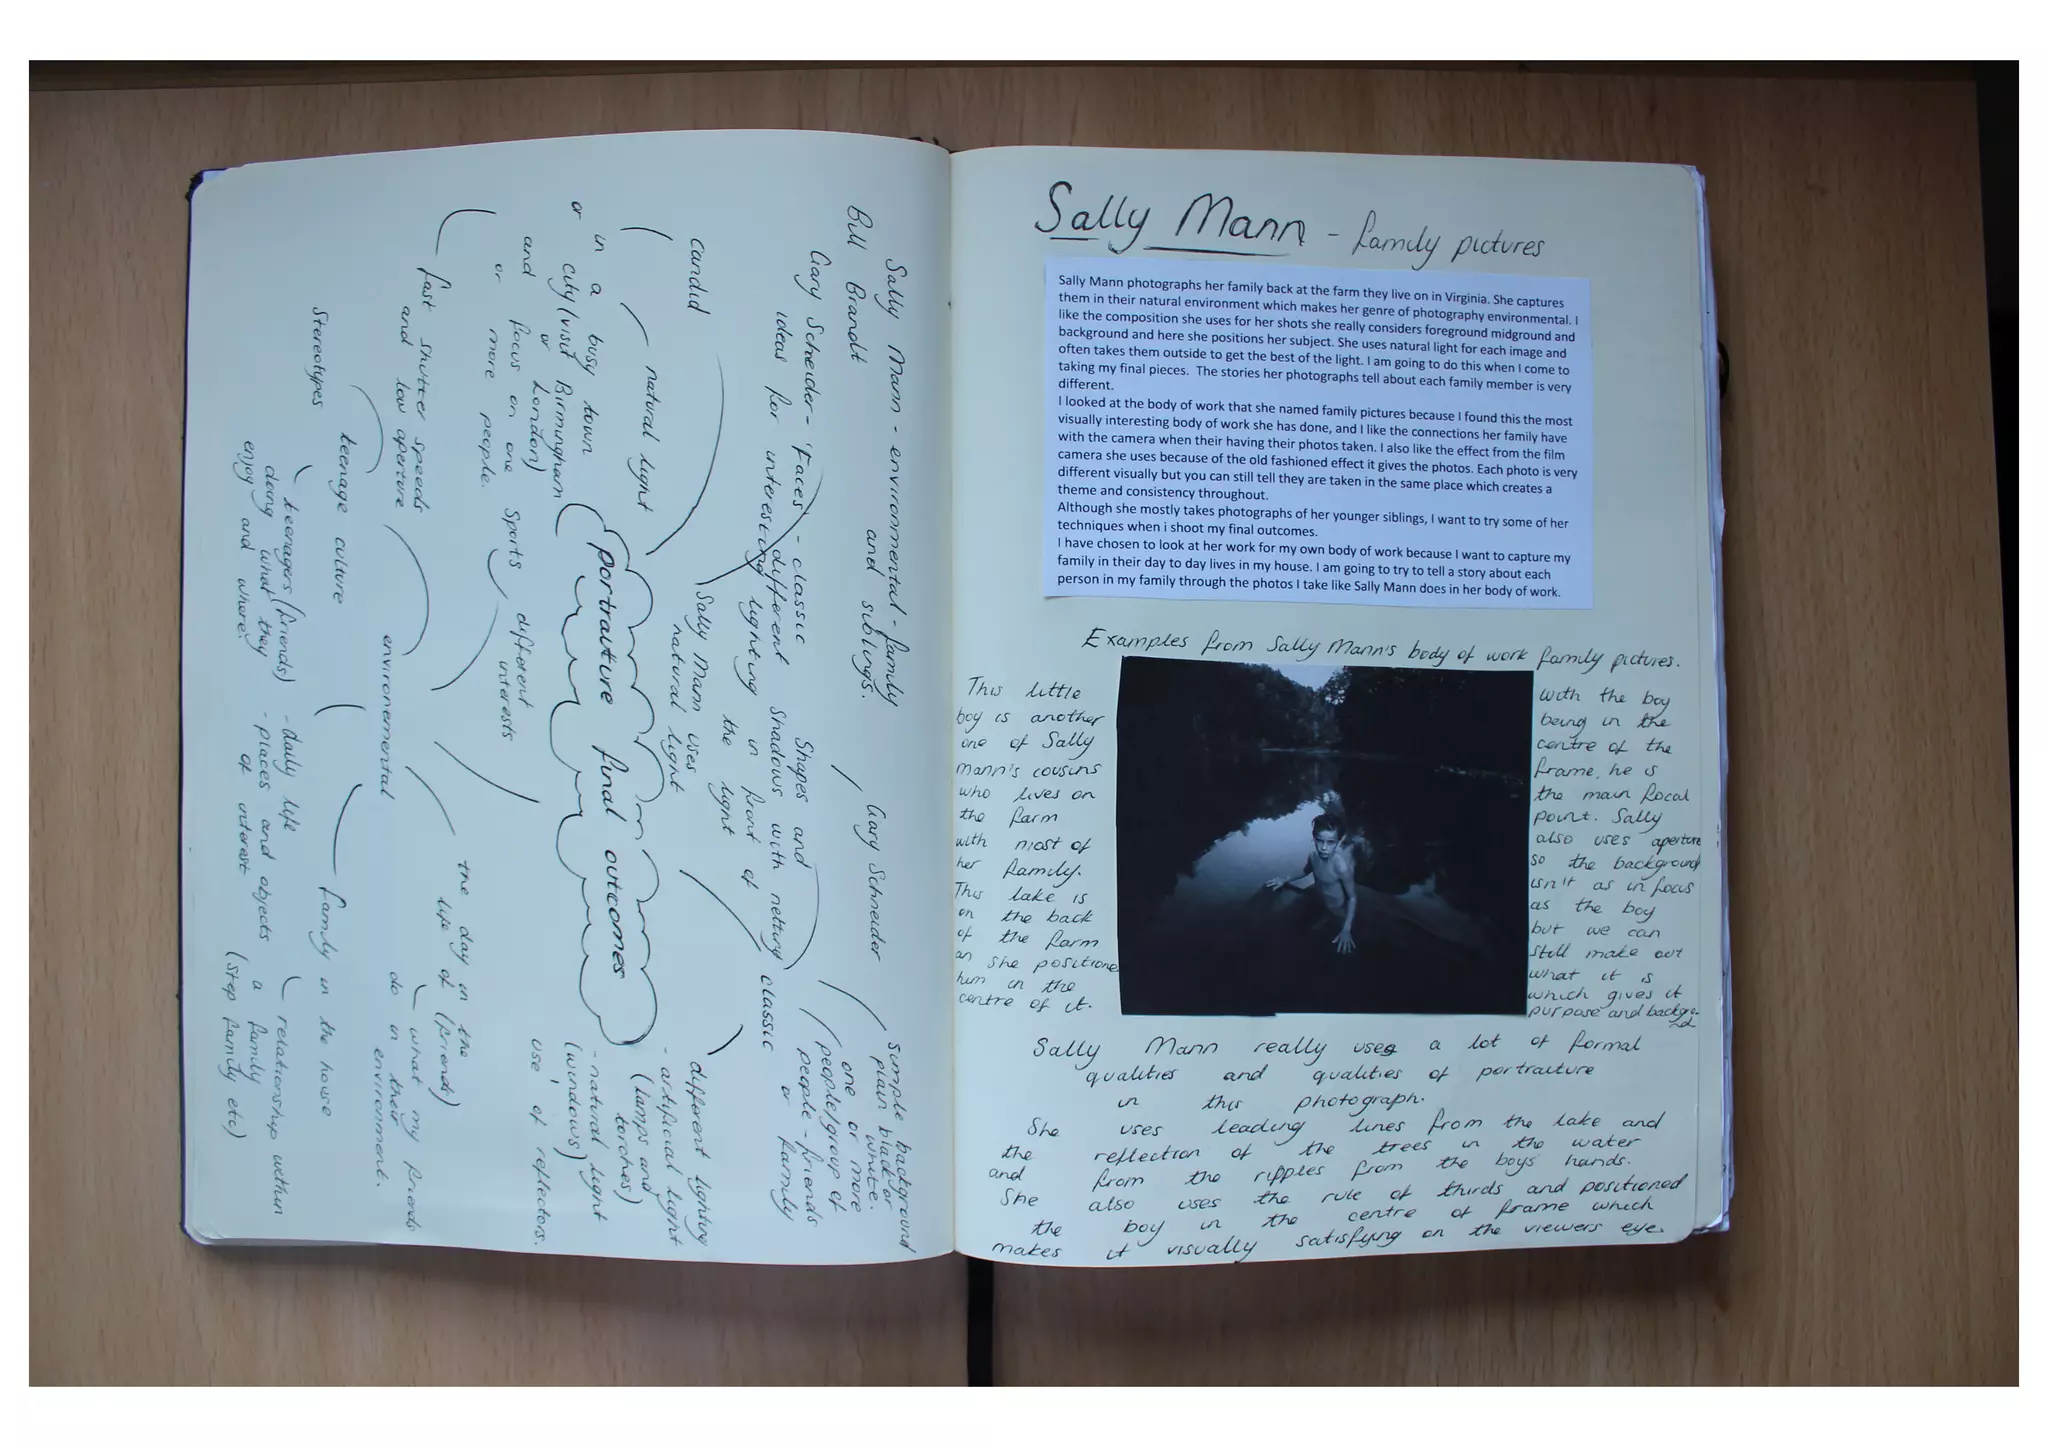 Sally Mann - environmental - family
and siblings.
Bill Brandt
Gary Scheider - 'Faces' - classic
ideas for interesting
different shadows with netting
Shapes and
lighting in front of
the light
Gary Schneider
simple background
plain black or
white.
one or more
people/group of
people - friends
or family
classic
candid
natural light
Sally Mann uses
natural light
different lighting
- artificial light
(lamps and
torches)
- natural light
(windows)
use of reflectors.
in a busy town
or city (visit Birmingham
or London)
and focus on one
or more people.
portraiture final outcomes
Sports
different
interests
fast shutter speeds
and low aperture
environemental
the day in the
life of (friends)
- what my friends
do in their
environment.
Stereotypes
teenage culture
teenagers (friends)
doing what they
enjoy and where.
- daily life
- places and objects
of interest
family in the house
relationship within
a family
(step family etc)
Sally Mann - family pictures
Sally Mann photographs her family back at the farm they live on in Virginia. She captures
them in their natural environment which makes her genre of photography environmental. I
like the composition she uses for her shots she really considers foreground midground and
background and here she positions her subject. She uses natural light for each image and
often takes them outside to get the best of the light. I am going to do this when I come to
taking my final pieces. The stories her photographs tell about each family member is very
different.
I looked at the body of work that she named family pictures because I found this the most
visually interesting body of work she has done, and I like the connections her family have
with the camera when their having their photos taken. I also like the effect from the film
camera she uses because of the old fashioned effect it gives the photos. Each photo is very
different visually but you can still tell they are taken in the same place which creates a
theme and consistency throughout.
Although she mostly takes photographs of her younger siblings, I want to try some of her
techniques when i shoot my final outcomes.
I have chosen to look at her work for my own body of work because I want to capture my
family in their day to day lives in my house. I am going to try to tell a story about each
person in my family through the photos I take like Sally Mann does in her body of work.
Examples from Sally Mann's body of work family pictures.
This little
boy is another
one of Sally
Mann's cousins
who lives on
the farm
with most of
her family.
This lake is
on the back
of the farm
an she positione
him in the
centre of it.
With the boy
being in the
centre of the
frame, he is
the main focal
point. Sally
also uses aperture
so the background
isn't as in focus
as the boy
but we can
still make out
what it is
which gives it
purpose and backgro-
nd
Sally Mann really uses a lot of formal
qualities and qualities of portraiture
in this photograph.
She uses leading lines from the lake and
the reflection of the trees in the water
and from the ripples from the boys hands.
She also uses the rule of thirds and positioned
the boy in the centre of frame which
makes it visually satisfying on the viewers eye.